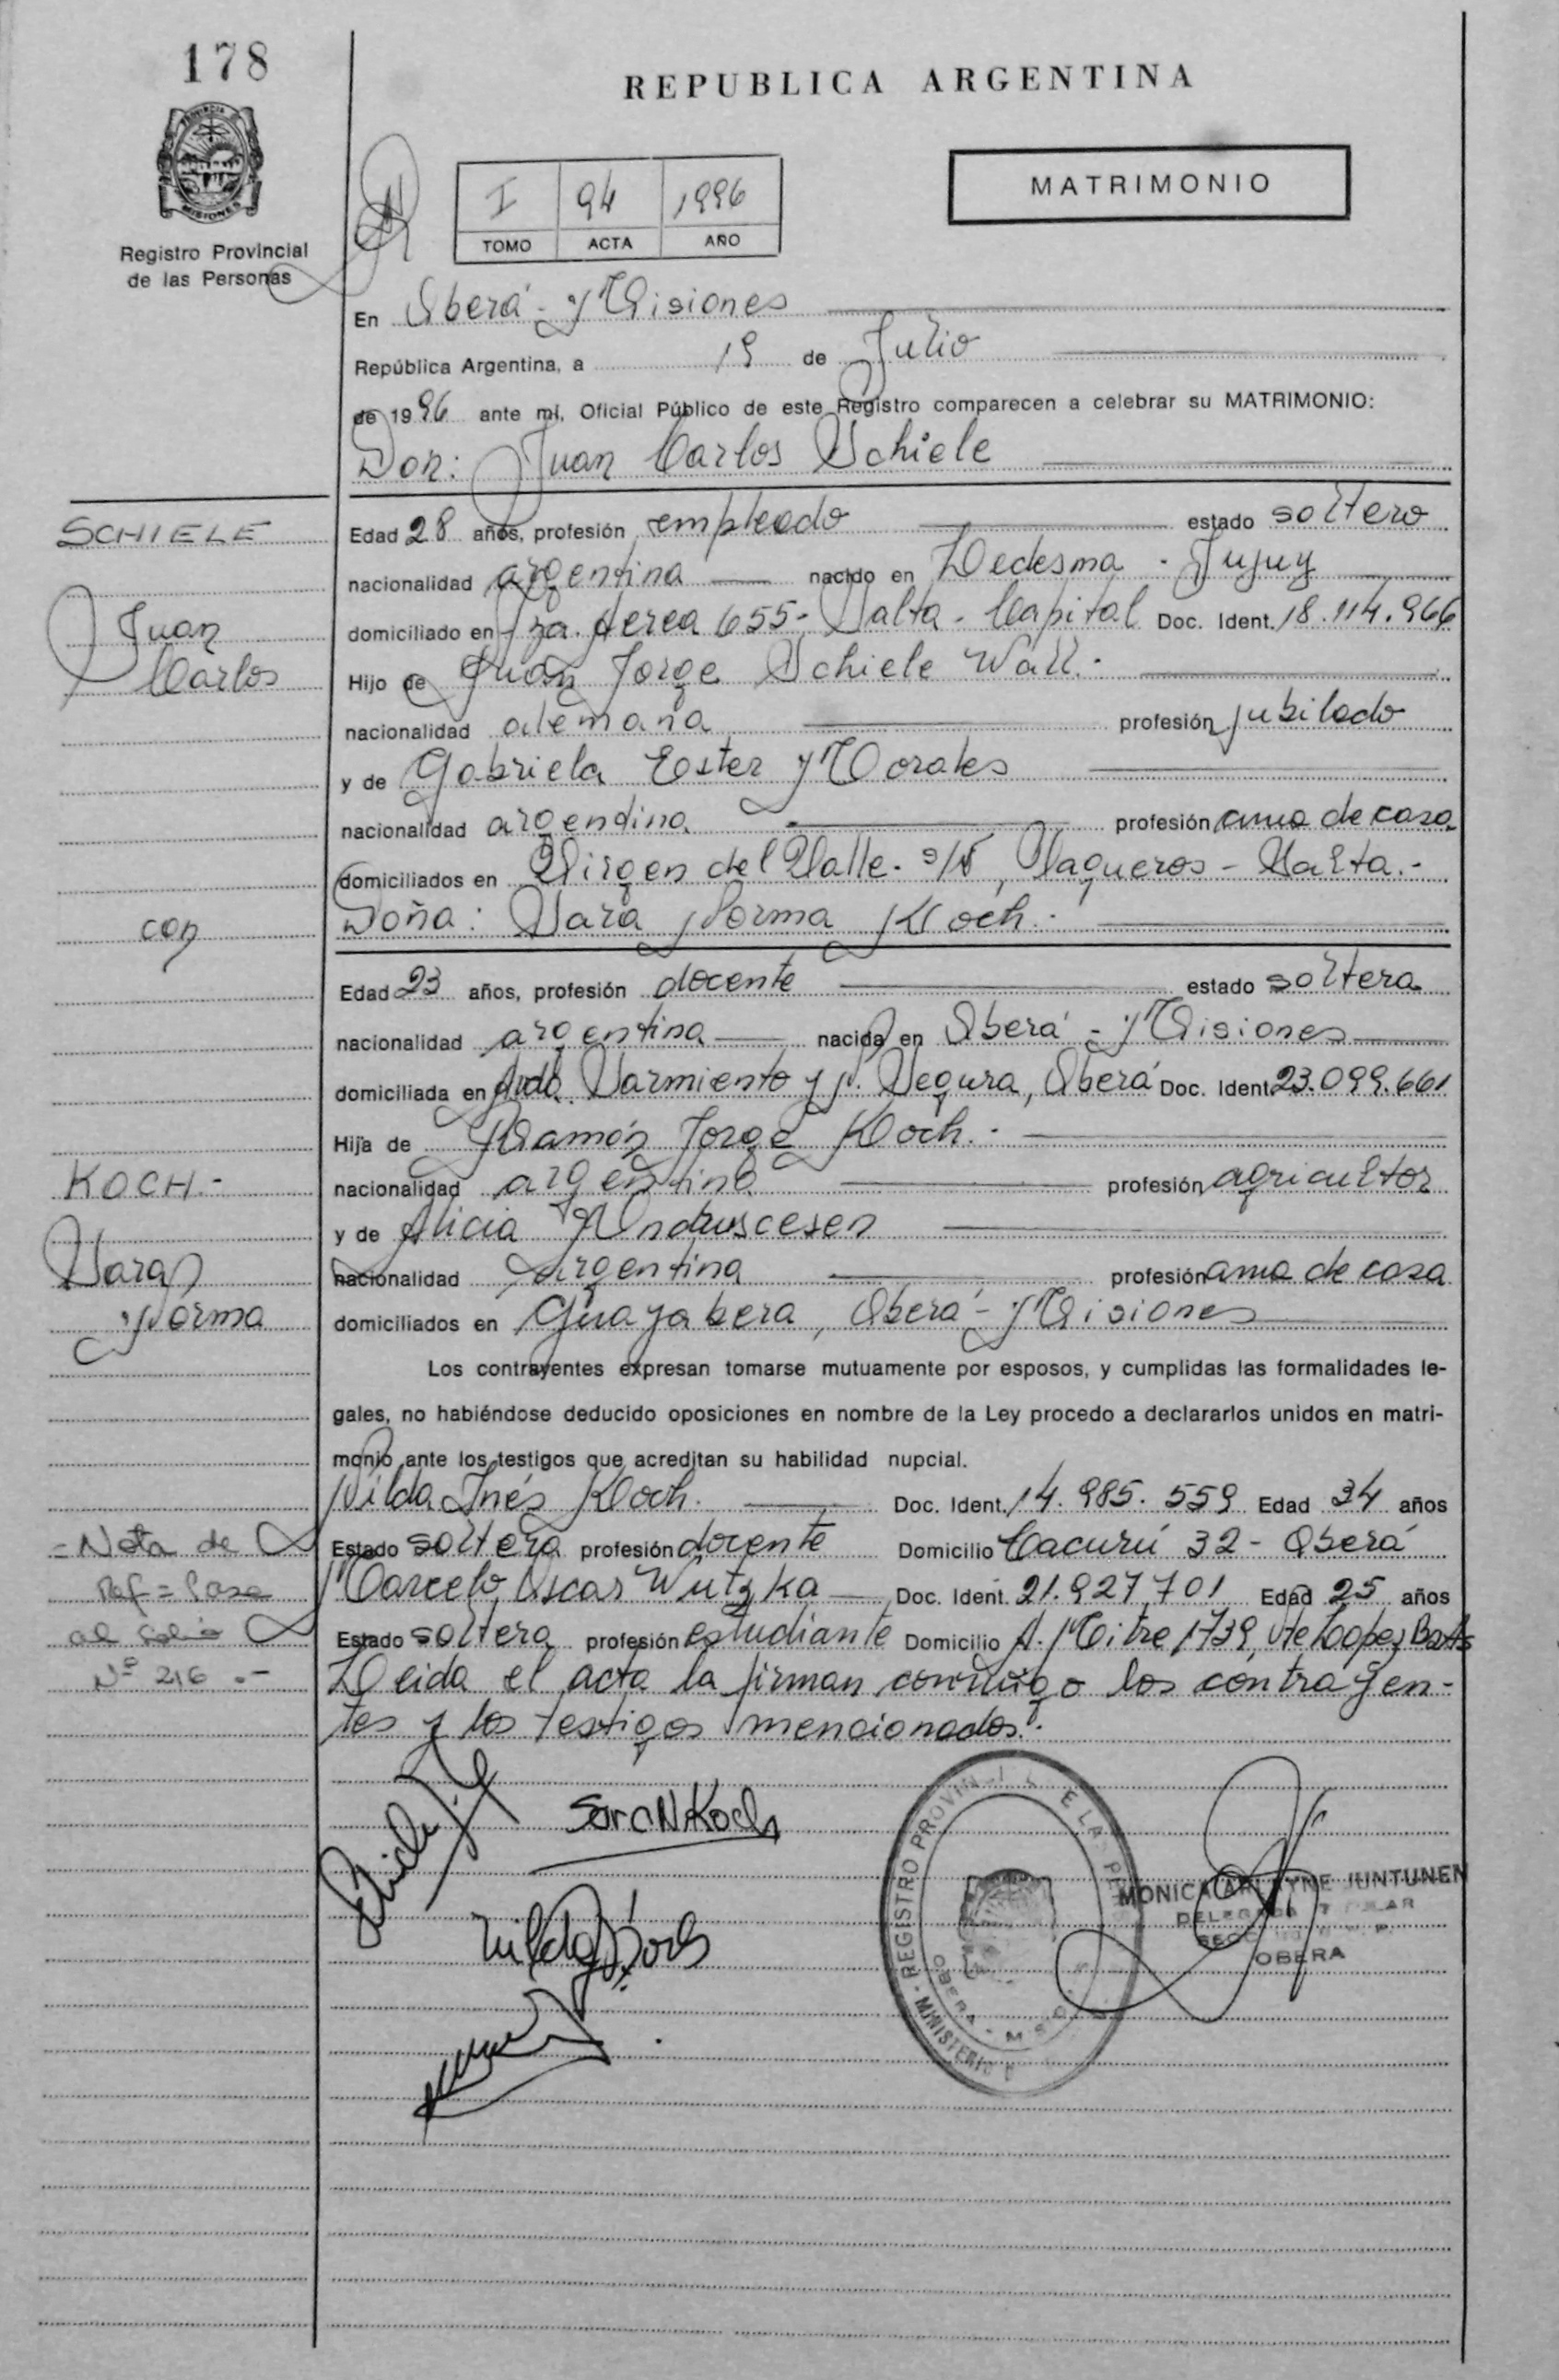 178
REPUBLICA ARGENTINA
PROVINCIA DE
MISIONES
Registro Provincial
de las Personas
I 94 1996
TOMO ACTA AÑO
MATRIMONIO
En Oberá - Misiones
República Argentina, a 19 de Julio
de 1996 ante mi, Oficial Público de este Registro comparecen a celebrar su MATRIMONIO:
Don: Juan Carlos Schiele
SCHIELE
Edad 28 años, profesión empleado estado soltero
nacionalidad argentina nacido en Ledesma - Jujuy
Juan
Carlos
domiciliado en Fza. Aerea 655 - Salta - Capital Doc. Ident. 18.114.966
Hijo de Juan Jorge Schiele Wall.-
nacionalidad alemana profesión jubilado
y de Gabriela Ester Morales
nacionalidad argentina profesión ama de casa
domiciliados en Virgen del Valle - s/N, Vaqueros - Salta.-
con
Doña: Sara Norma Koch.-
Edad 23 años, profesión docente estado soltera
nacionalidad argentina nacida en Oberá - Misiones
domiciliada en Avda. Sarmiento y P. Segura, Oberá Doc. Ident. 23.099.661
Hija de Ramón Jorge Koch.-
KOCH.-
nacionalidad argentina profesión agricultor
y de Alicia Andruscesen
Sara
Norma
nacionalidad Argentina profesión ama de casa
domiciliados en Guayabera, Oberá - Misiones
Los contrayentes expresan tomarse mutuamente por esposos, y cumplidas las formalidades le-
gales, no habiéndose deducido oposiciones en nombre de la Ley procedo a declararlos unidos en matri-
monio ante los testigos que acreditan su habilidad nupcial.
Nilda Inés Koch. Doc. Ident. 14.985.559 Edad 34 años
= Nota de
Ref = Pasa
al folio
Nº 216.-
Estado soltera profesión docente Domicilio Cacurú 32 - Oberá
Marcelo Oscar Wutzka Doc. Ident. 21.927.701 Edad 25 años
Estado soltero profesión estudiante Domicilio A. Mitre 1739, Vte Lopez BsAs
Leida el acta la firman conmigo los contrayen-
tes y los testigos mencionados.-
Sara N. Koch
Nilda I. Koch
REGISTRO PROVINCIAL DE LAS
MINISTERIO
OBERA - MSNES
MONICA ARLYNE JUNTUNEN
DELEGADA TITULAR
OBERA